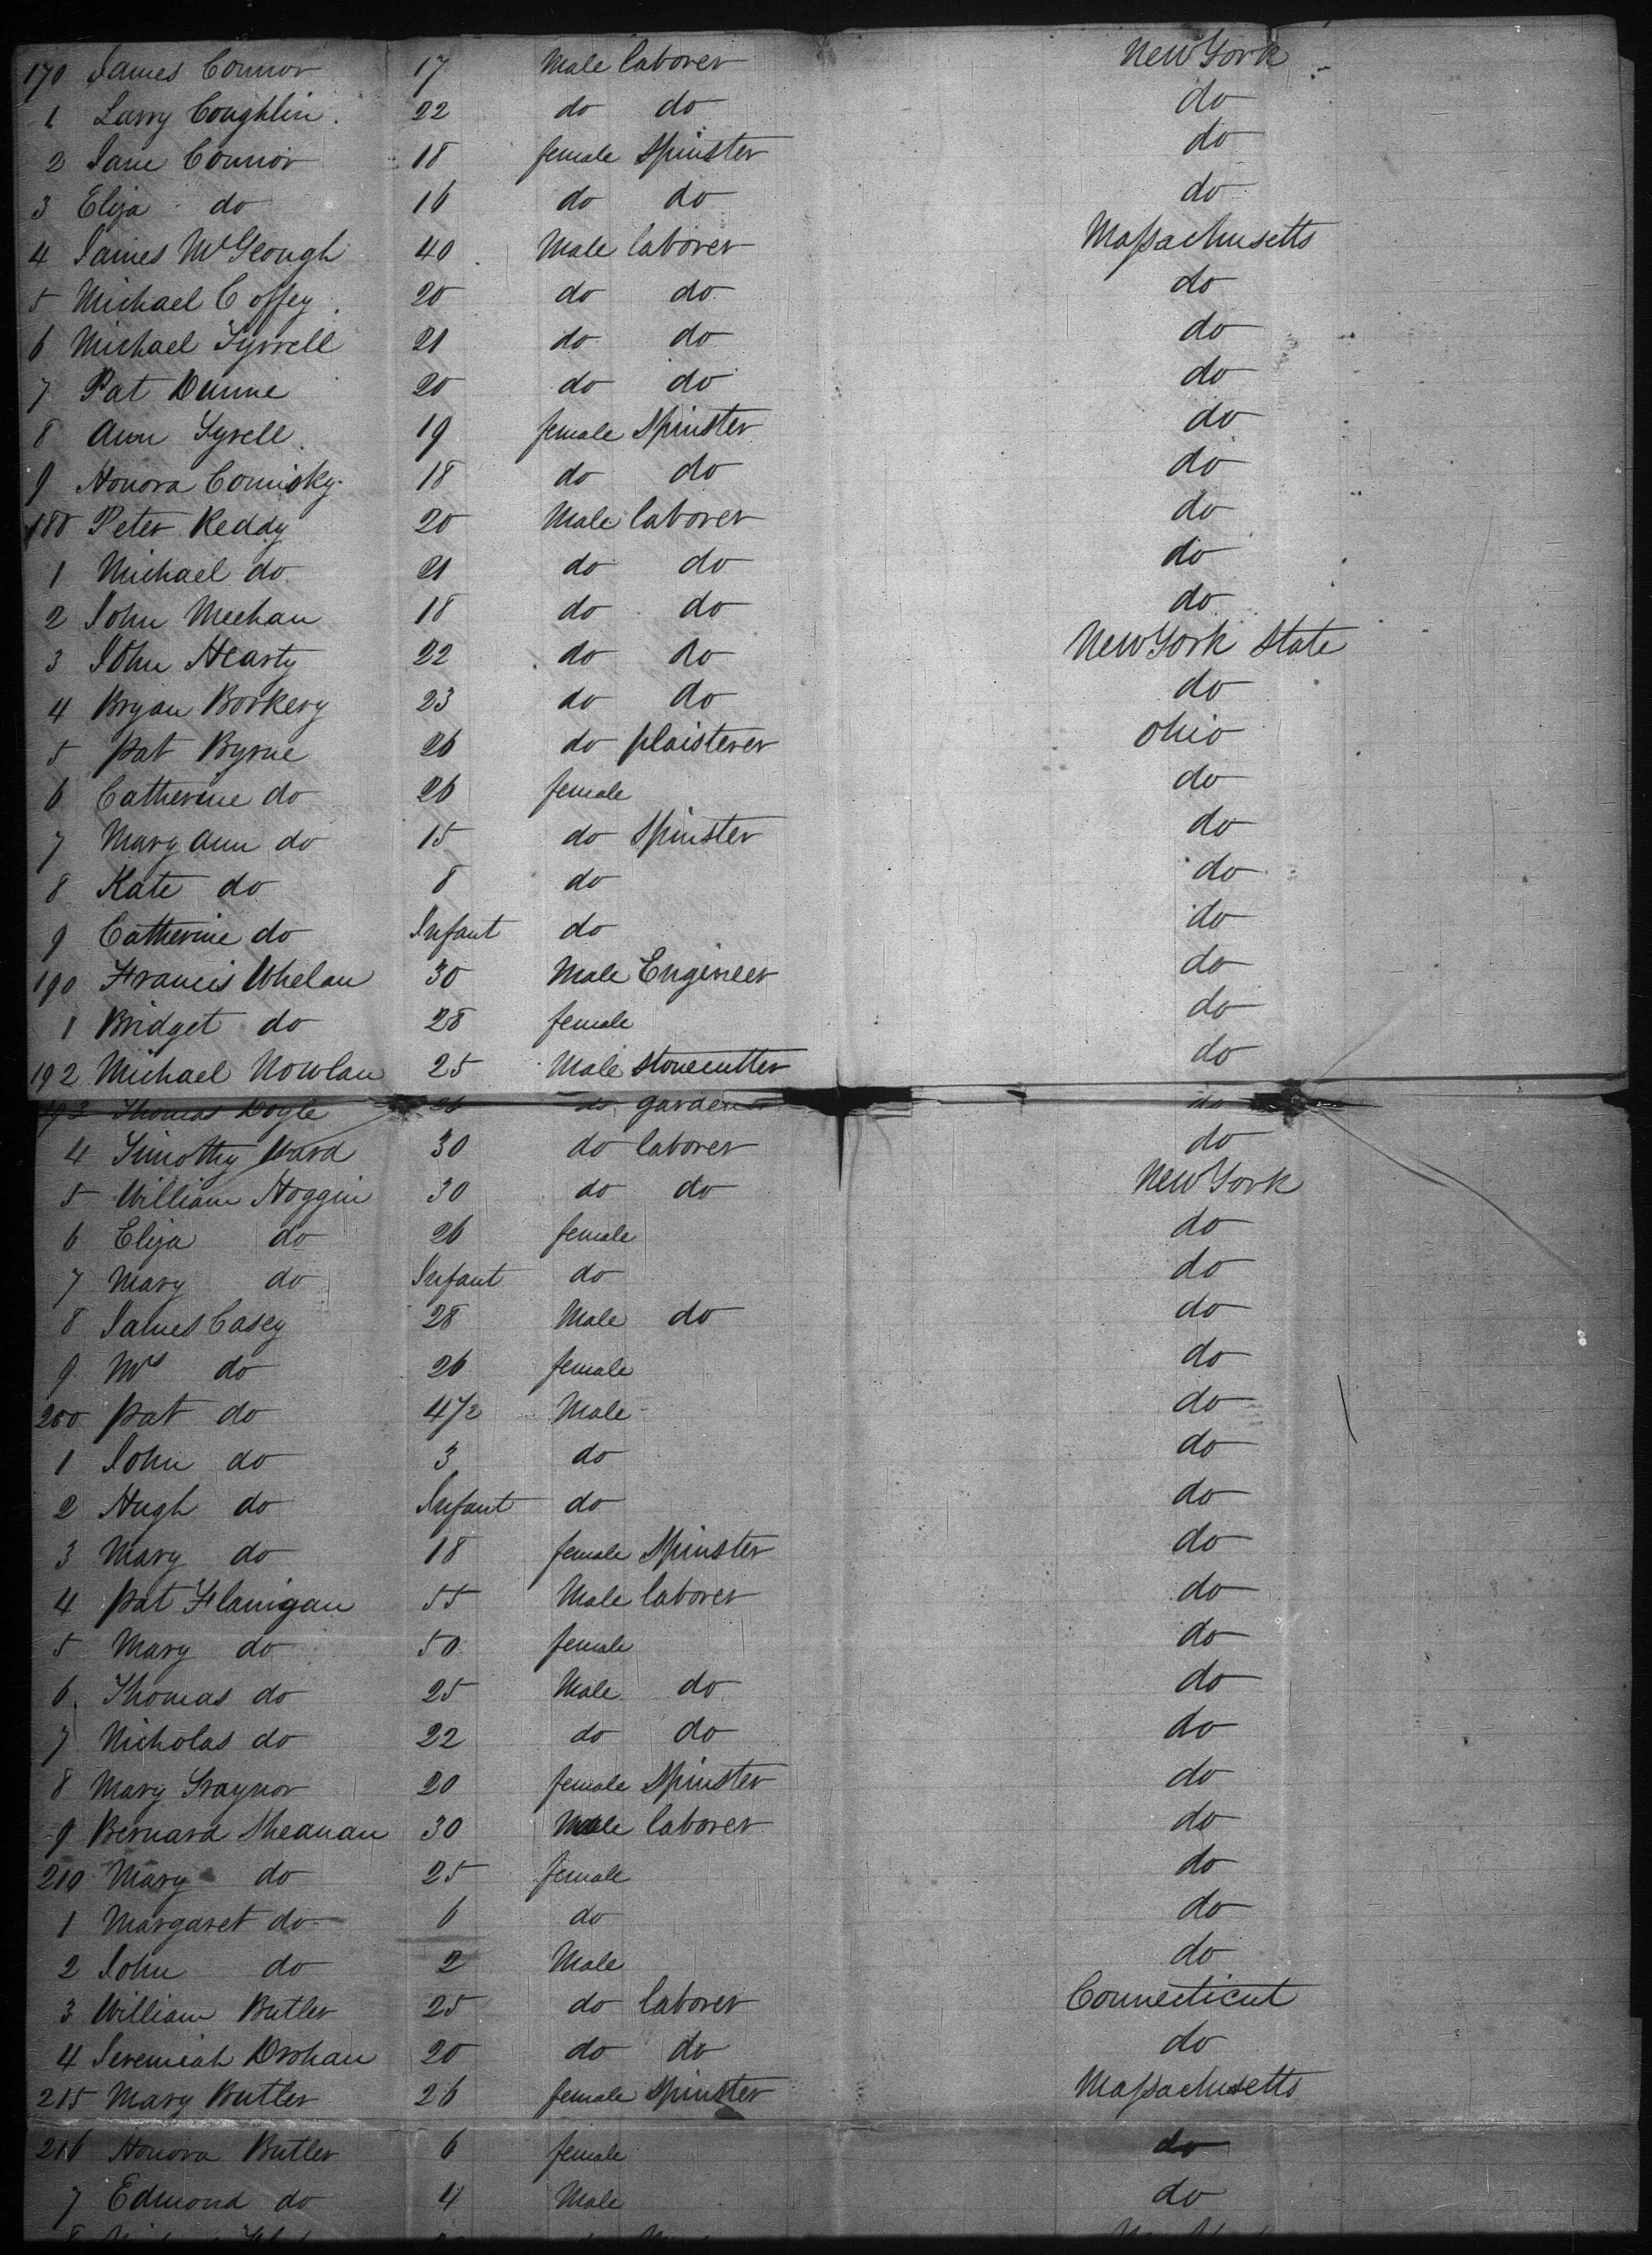 170 James Connor 17 Male laborer New York
1 Larry Coughlin 22 do do do
2 Jane Connor 18 female Spinster do
3 Eliza do 16 do do do
4 James McGeough 40 Male laborer Massachusetts
5 Michael Coffey 20 do do do
6 Michael Tyrrell 21 do do do
7 Pat Dunne 20 do do do
8 Ann Tyrell 19 female Spinster do
9 Honora Comisky 18 do do do
180 Peter Reddy 20 Male laborer do
1 Michael do 21 do do do
2 John Meehan 18 do do do
3 John Hearty 22 do do New York State
4 Bryan Borkery 23 do do do
5 Pat Byrne 26 do plaisterer Ohio
6 Catherine do 26 female do
7 Mary Ann do 15 do Spinster do
8 Kate do 8 do do
9 Catherine do Infant do do
190 Francis Whelan 30 Male Engineer do
1 Bridget do 28 female do
192 Michael Nowlan 25 Male stonecutter do
193 Thomas Doyle do gardener do
4 Timothy Ward 30 do laborer do
5 William Hoggin 30 do do New York
6 Eliza do 26 female do
7 Mary do Infant do do
8 James Casey 28 Male do do
9 Mrs do 26 female do
200 Pat do 4 1/2 Male do
1 John do 3 do do
2 Hugh do Infant do do
3 Mary do 18 female Spinster do
4 Pat Flanigan 55 Male laborer do
5 Mary do 50 female do
6 Thomas do 25 Male do do
7 Nicholas do 22 do do do
8 Mary Traynor 20 female Spinster do
9 Bernard Sheanan 30 Male laborer do
210 Mary do 25 female do
1 Margaret do 6 do do
2 John do 2 Male do
3 William Butler 25 do laborer Connecticut
4 Jeremiah Drohan 20 do do do
215 Mary Butler 26 female Spinster Massachusetts
216 Honora Butler 6 female do
7 Edmond do 4 Male do